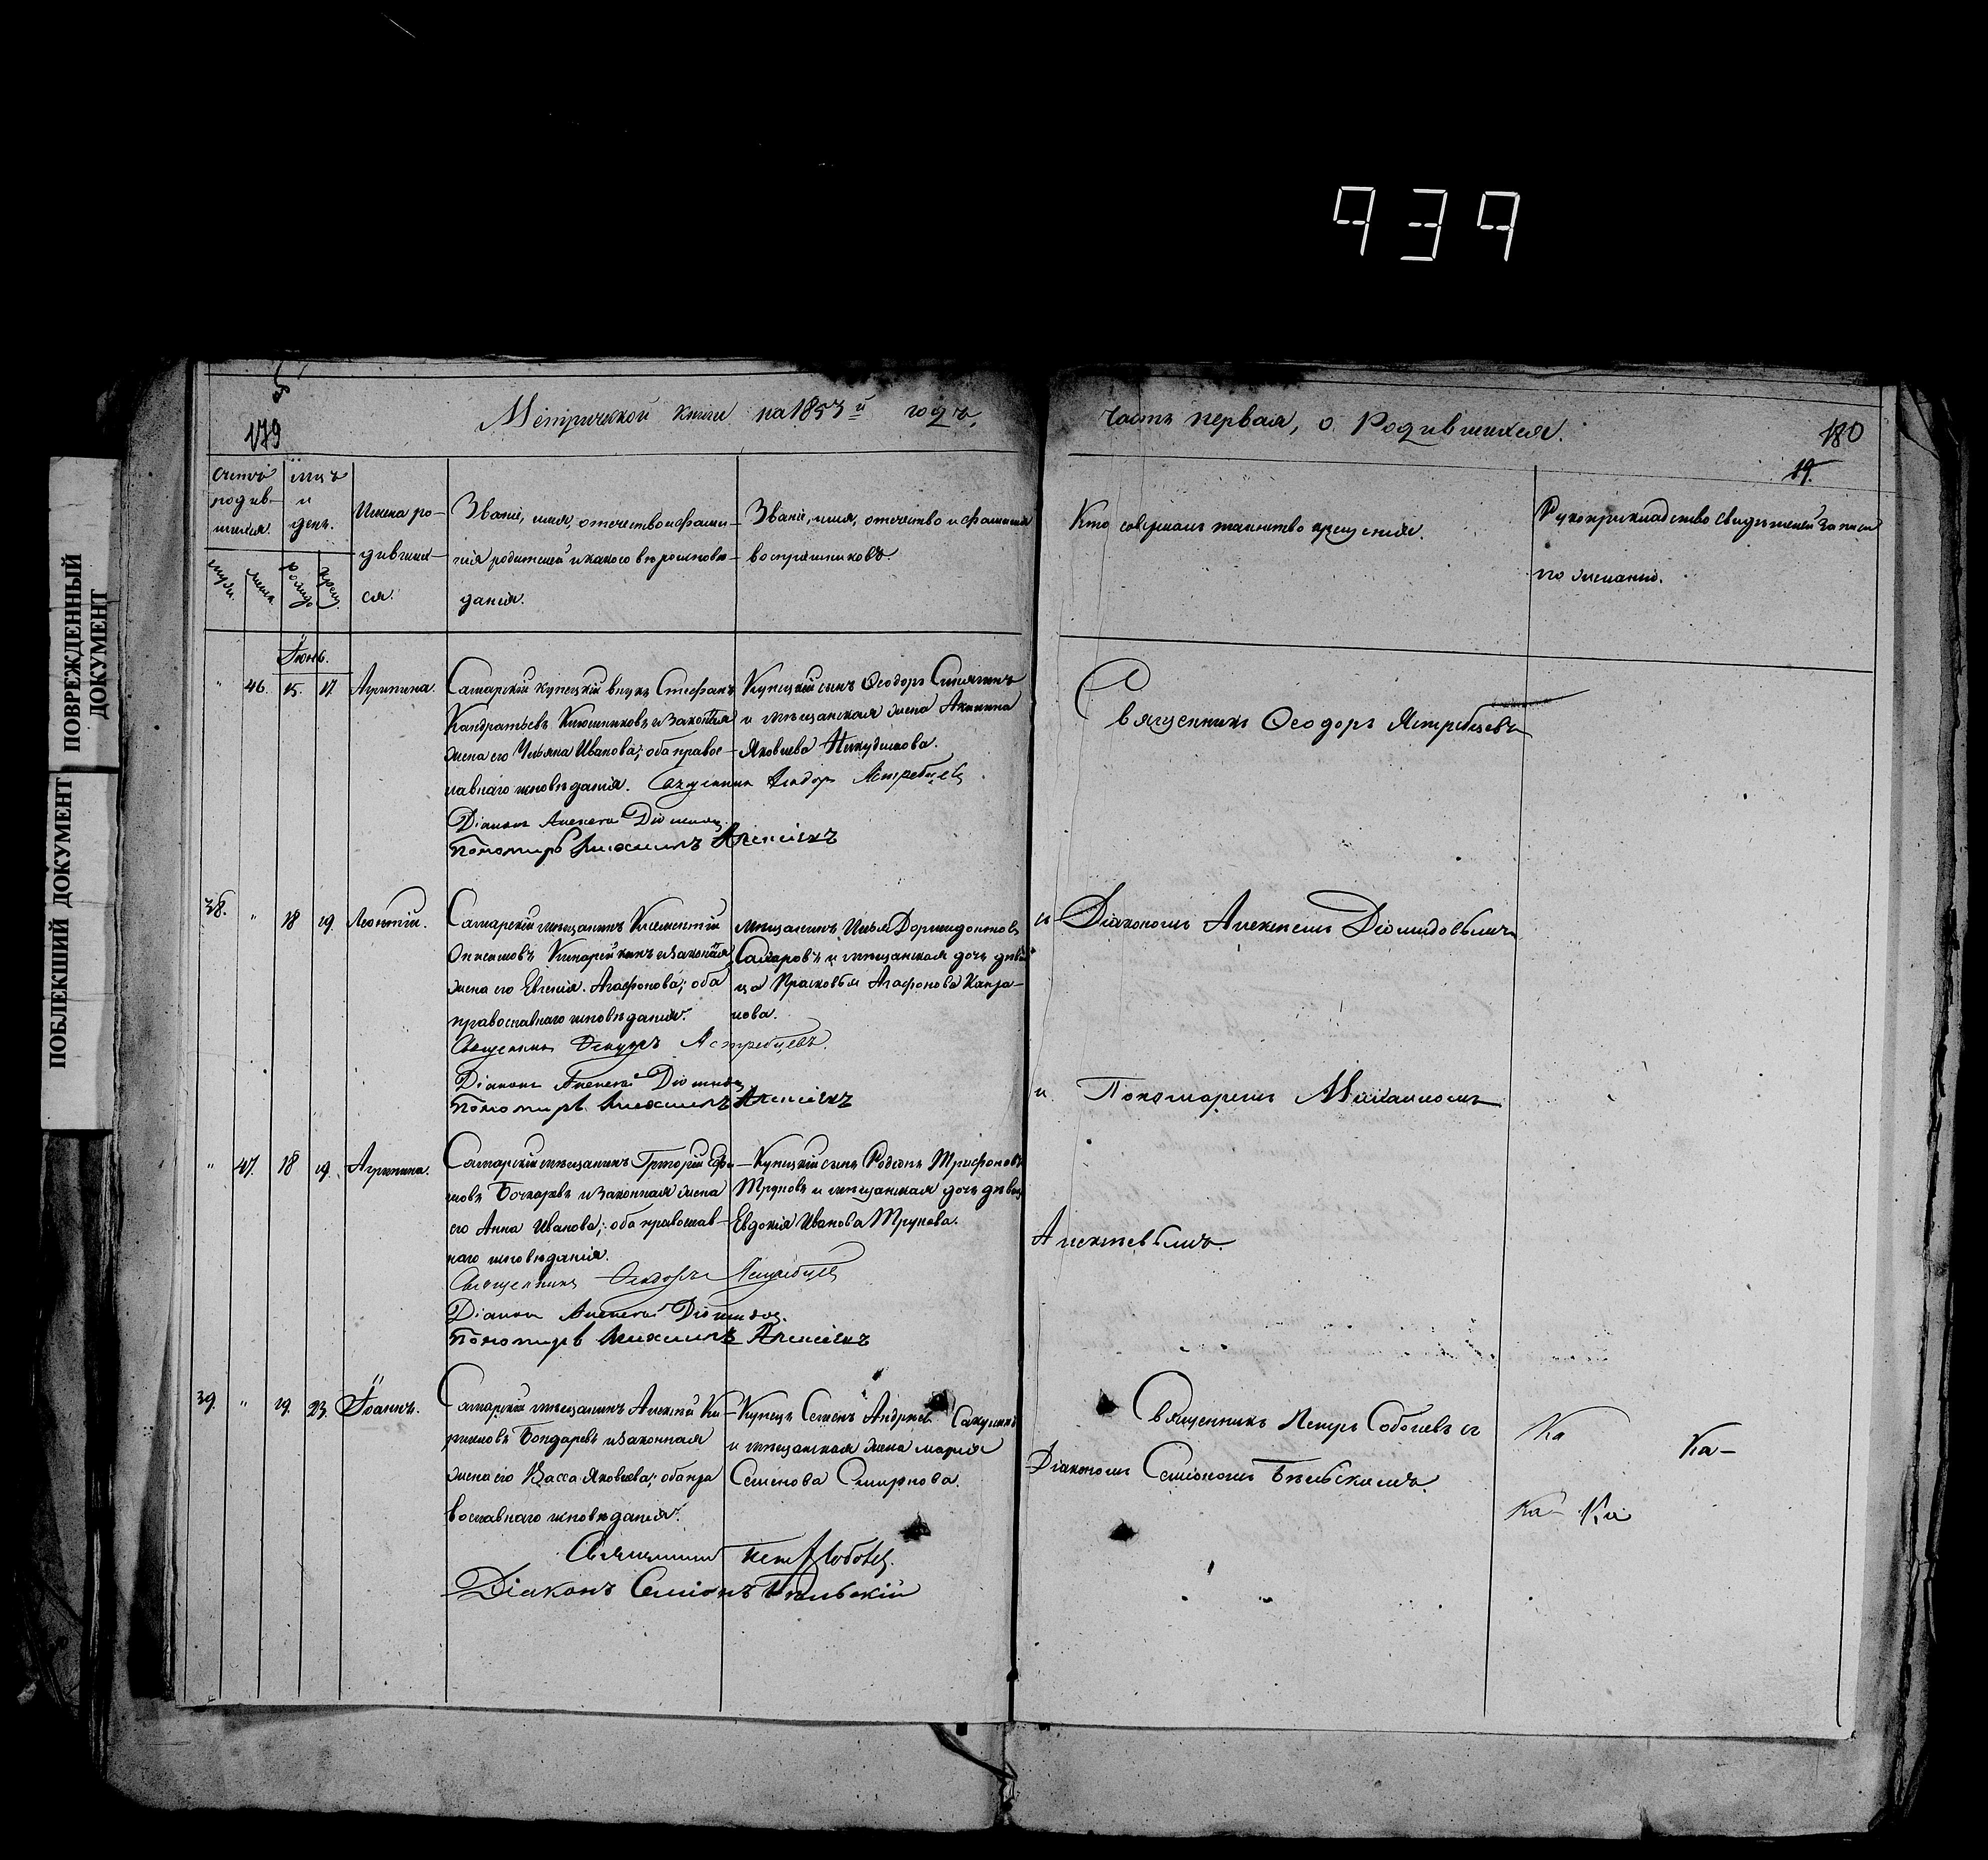 939
ПОВРЕЖДЕННЫЙ
ДОКУМЕНТ
ПОБЛЕКШИЙ ДОКУМЕНТ
179
Метрической книги на 1853й годъ,
часть первая, о Родившихся.
180
19.
Счетъ родив-шихся.
мцъ и день.
Имена ро-
дивших-
ся.
Званіе, имя, отечество и фами-
лія родителей и какого вѣроисповѣ-
данія.
Званіе, имя, отечество и фамилія
воспріемниковъ.
Кто совершалъ таинство крещенія.
Рукоприкладство свидѣтелей записи
по желанію.
Іюнь.
" 46. 15. 17. Агрипина.
Самарскій купецкій внукъ Стефанъ
Кандратьевъ Ключниковъ и законная
жена его Ульяна Иванова; оба правос-
лавнаго исповѣданія.
Священникъ Ѳеодоръ Ястребцевъ
Діаконъ Алексей Діомидов
Пономарь Михаилъ Алексіевъ
Купецкій сынъ Ѳеодоръ Синягинъ
и мѣщанская жена Акилина
Яковлева Никудимова.
Священникъ Ѳеодоръ Ястребцевъ
38. " 18 19. Леонтій.
Самарскій мѣщанинъ Климентій
жена его Евгенія Агафонова; оба
православнаго исповѣданія.
Священникъ Ѳеодоръ Ястребцевъ.
Діаконъ Алексей Діомидов
Пономарь Михаилъ Алексіевъ
мѣщанинъ Илья Дормидонтовъ
Сахаровъ и мѣщанская дочь дѣви-
ца Прасковья Агафонова
нова.
съ Діакономъ Алексеемъ Діомидовымъ
и Пономаремъ Михаиломъ
Алексѣевымъ.
" 47. 18 19. Агрипина.
Самарскій мѣщанинъ Григорій Ефи-
мовъ Бочкаревъ и законная жена
его Анна Иванова; оба православ-
наго исповѣданія.
Священникъ Ѳеодоръ Ястребцев
Діаконъ Алексей Діомидов.
Пономарь Михаилъ Алексіевъ
Купецкій сынъ Родіонъ Трифоновъ
Труновъ и мѣщанская дочь дѣвица
Евдокія Иванова Трунова.
39. " 19. 23. Іоаннъ.
Самарскій мѣщанинъ Алексѣй Ки-
риловъ Бондаревъ и законная
жена его Васса Яковлева; оба пра
вославнаго исповѣданія.
Священникъ Петр Соболев.
Діаконъ Симіонъ Бѣльскій
Купецъ Семенъ Андреев
и мѣщанская жена Марія
Семенова Смирнова.
Священникъ Петръ Соболевъ съ
Діакономъ Симіономъ Бѣльскимъ.
Ка Ка-
Ка- Ка